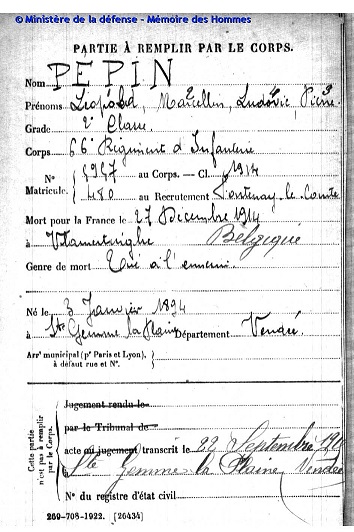 © Ministère de la défense - Mémoire des Hommes
PARTIE À REMPLIR PAR LE CORPS.
Nom PEPIN
Prénoms Léopold, Marcellin, Ludovic, Pierre
2 4 3
Grade 2e Classe
Corps 66e Régiment d'Infanterie
N° Matricule. { 5947 au Corps. — Cl. 1914
480 au Recrutement Fontenay-le-Comte
Mort pour la France le 27 Décembre 1914
à Vlamertinghe Belgique
Genre de mort Tué à l'ennemi
Né le 3 Janvier 1894
à Ste Gemme la Plaine Département Vendée
Arrt municipal (pr Paris et Lyon), à défaut rue et N°.
Cette partie n'est pas à remplir par le Corps.
Jugement rendu le
par le Tribunal de
acte ou jugement transcrit le 22 Septembre
à Ste Gemme la Plaine, Vendée
N° du registre d'état civil
269-708-1922. [26434]